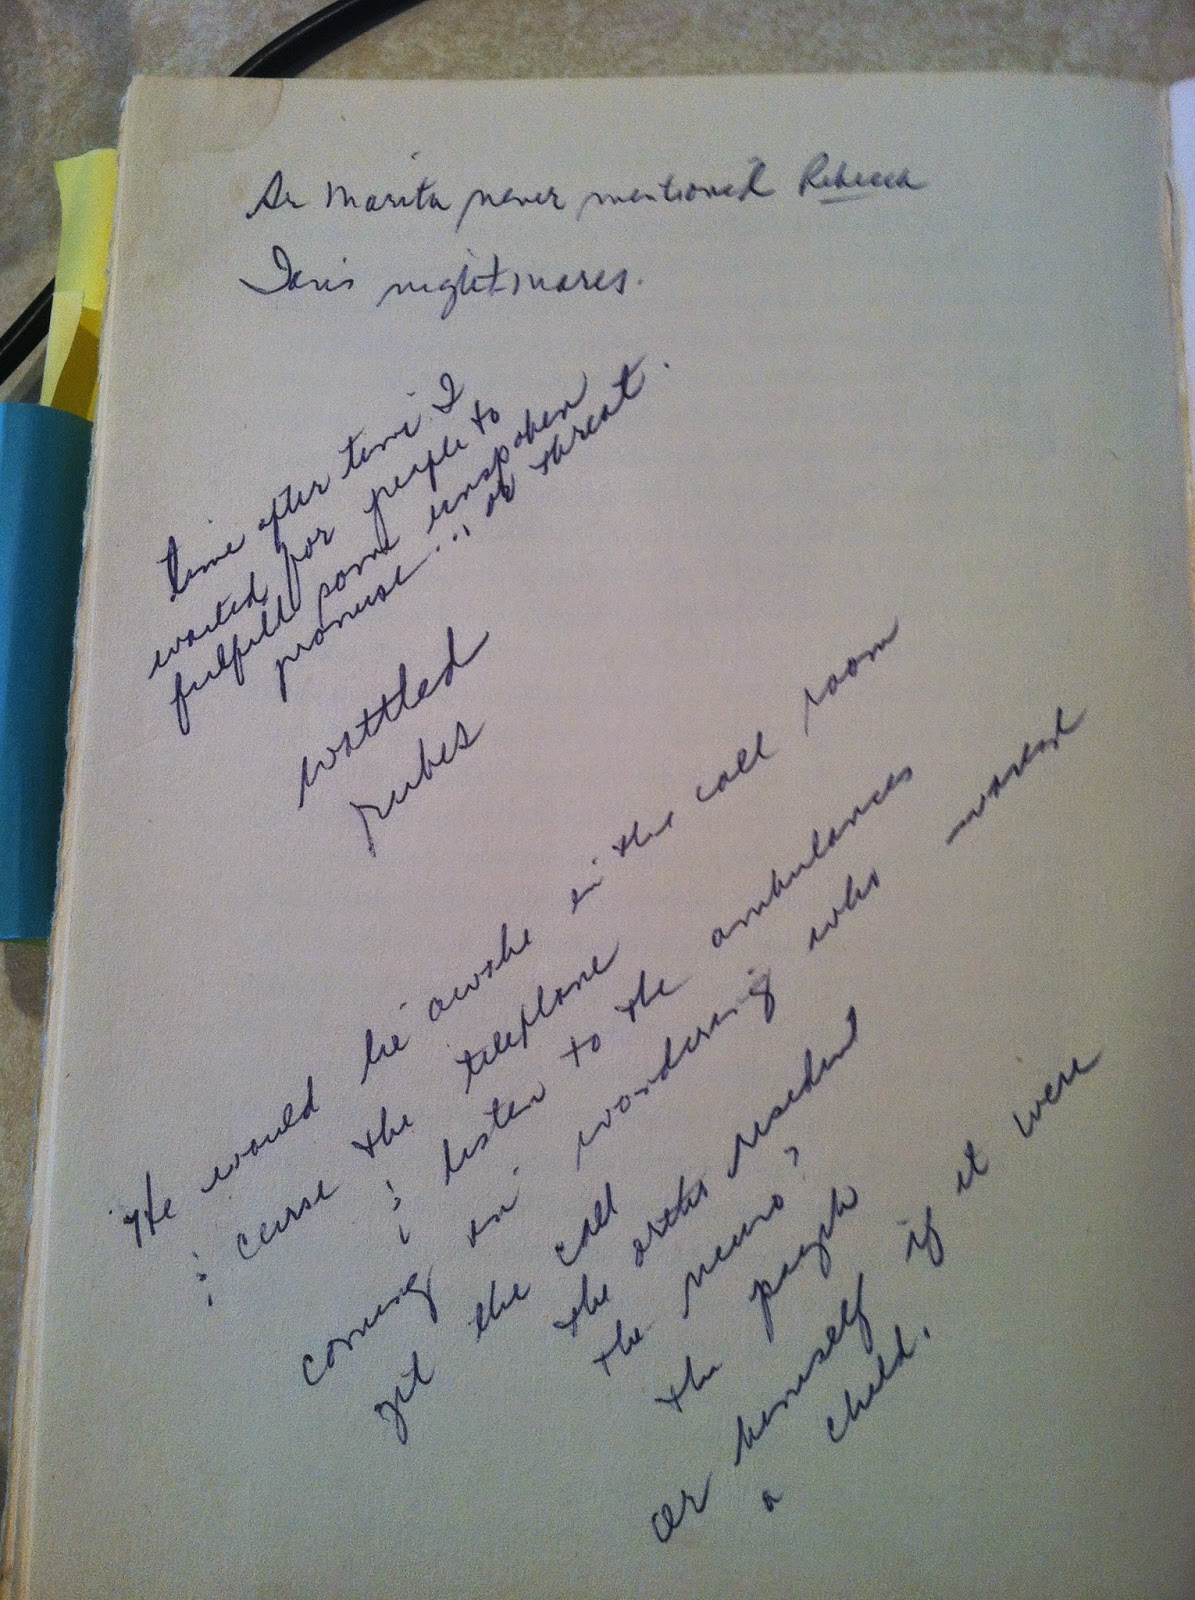 Marita never mentioned Rebecca
nightmares.
time after time I
waited for people to
fulfill some unspoken
promise... or threat.
wattled
He would lie awake in the call room
& curse the telephone
& listen to the ambulances
coming in wondering who would
get the call
the ortho resident
the neuro?
the psych
or himself if it were
a child.